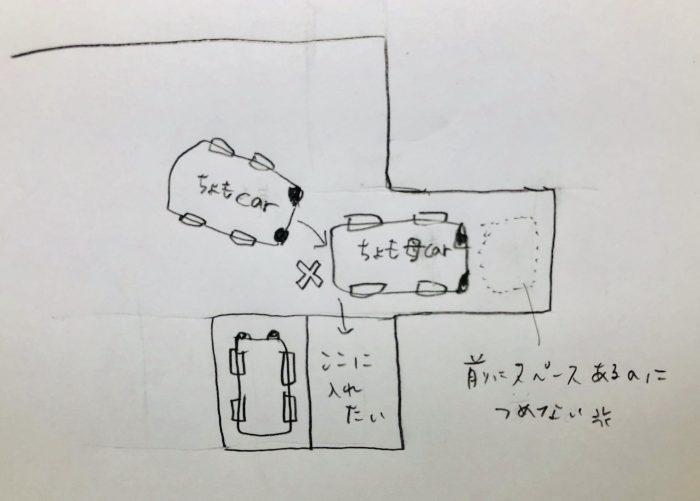 ちょもcar
ちょも母car
ここに
入れ
たい
前にスペースあるのに
つめない